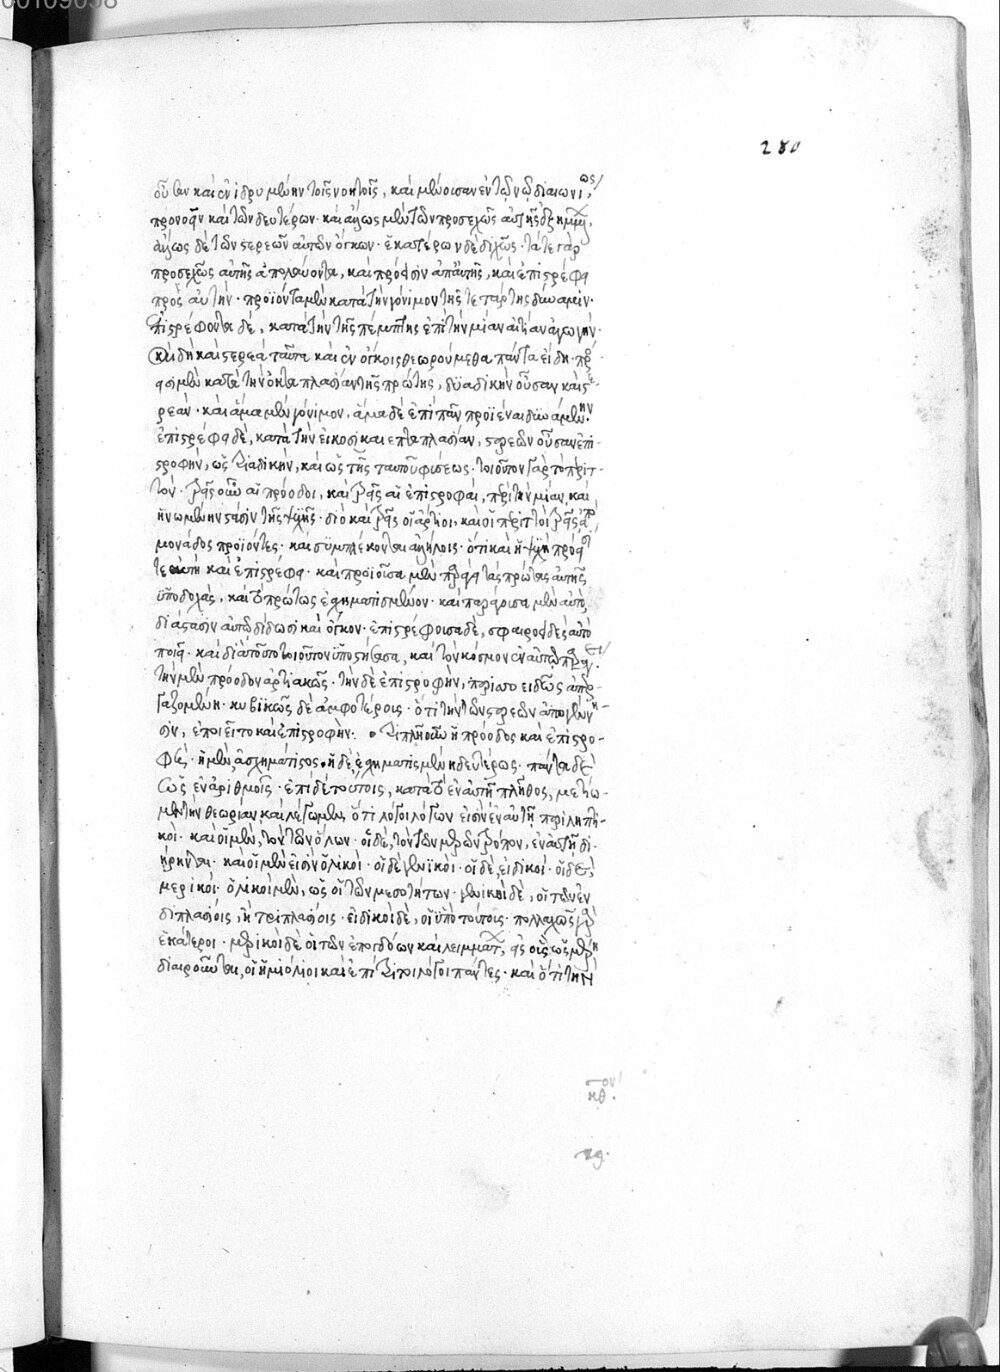 00109058
280
οὖσαν καὶ ἐνιδρυμένην τοῖς νοητοῖς, καὶ μένουσαν ἐν τῷ νῷ διαιωνίως,
προνοεῖν καὶ τῶν δευτέρων· καὶ ἄλλως μὲν τῶν προσεχῶς αὐτῆς ἐξημμένων,
ἄλλως δὲ τῶν στερεῶν αὐτῶν ὄγκων· ἑκατέρων δὲ διχῶς· τά τε γὰρ
προσεχῶς αὐτῆς ἀπολαύοντα, καὶ πρόεισιν ἀπ' αὐτῆς, καὶ ἐπιστρέφει
πρὸς αὐτήν· προϊόντα μὲν κατὰ τὴν γόνιμον τῆς τετάρτης δύναμιν·
ἐπιστρέφοντα δὲ, κατὰ τὴν τῆς πέμπτης ἐπὶ τὴν μίαν αἰτίαν ἀγωγήν·
καὶ δὴ καὶ στερεὰ ταῦτα καὶ ἐν ὄγκοις θεωρούμεθα πάντα εἴδη· πρό-
εισι μὲν κατὰ τὴν ὀκταπλασίαν τῆς πρώτης, δυαδικὴν οὖσαν καὶ στε-
ρεάν· καὶ ἅμα μὲν γόνιμον, ἅμα δὲ ἐπὶ πᾶν προϊέναι δυναμένην·
ἐπιστρέφει δὲ, κατὰ τὴν εἰκοσικαιεπταπλασίαν, στερεῶν οὖσαν ἐπι-
στροφὴν, ὡς τριαδικὴν, καὶ ὡς τῆς ταυτοῦ φύσεως· τοιοῦτον γὰρ τὸ περιτ-
τόν· τρεῖς οὖν αἱ πρόοδοι, καὶ τρεῖς αἱ ἐπιστροφαὶ, περὶ τὴν μίαν καὶ
ἡνωμένην στάσιν τῆς ψυχῆς· διὸ καὶ τρεῖς οἱ ἄρτιοι, καὶ οἱ περιττοὶ τρεῖς ἀπὸ
μονάδος προϊόντες· καὶ συμπλέκονται ἀλλήλοις· ὅτι καὶ ἡ ψυχὴ πρόεισί
τε αὐτὴ καὶ ἐπιστρέφει· καὶ προϊοῦσα μὲν παράγει τὰς πρώτας αὐτῆς
ὑποδοχὰς, καὶ τὸ πρώτως ἐσχηματισμένον· καὶ παράγουσα μὲν αὐτὸ,
διάστασιν αὐτῷ δίδωσι καὶ ὄγκον· ἐπιστρέφουσα δὲ, σφαιροειδὲς αὐτὸ
ποιεῖ· καὶ διὰ τοῦτο τοιοῦτον ὑποστήσασα, καὶ τὸν κόσμον ἐν αὐτῷ παράγει·
τὴν μὲν πρόοδον ἀρτιακῶς· τὴν δὲ ἐπιστροφὴν, περιττοειδῶς ἀπερ-
γαζομένη· κυβικῶς δὲ ἀμφοτέροις· ὅτι τὴν τῶν στερεῶν ἀπογέννη-
σιν, ἐποιεῖτο καὶ ἐπιστροφήν· τριπλῆ οὖν ἡ πρόοδος καὶ ἐπιστρο-
φή· ἡ μὲν, ἀσχημάτιστος· ἡ δὲ, ἐσχηματισμένη δευτέρως· πάντα δὲ
ὡς ἐν ἀριθμοῖς· ἐπὶ δὲ τούτοις, κατὰ τὸ ἐν αὐτῇ πλῆθος, μετίω-
μεν τὴν θεωρίαν καὶ λέγωμεν, ὅτι λόγοι λόγων εἰσὶν ἐν αὐτῇ περιληπτι-
κοί· καὶ οἱ μὲν, τὸν τῶν ὅλων· οἱ δὲ, τὸν τῶν μερῶν τρόπον, ἐν αὐτῇ δι-
ῄρηνται· καὶ οἱ μὲν εἰσὶν ὁλικοί· οἱ δὲ γενικοί· οἱ δὲ, εἰδικοί· οἱ δὲ,
μερικοί· ὁλικοὶ μὲν, ὡς οἱ τῶν μεσοτήτων· γενικοὶ δὲ, οἱ τῶν ἐν
διπλασίοις, ἢ τριπλασίοις· εἰδικοὶ δὲ, οἱ ὑπὸ τούτοις· πολλαχῶς γὰρ
ἑκάτεροι· μερικοὶ δὲ οἱ τῶν ἐπογδόων καὶ λειμμάτων, εἰς οὓς ὡς μέρη
διαιροῦνται, οἱ ἡμιόλιοι καὶ ἐπίτριτοι λόγοι πάντες· καὶ ὅτι τὴν
κθον.